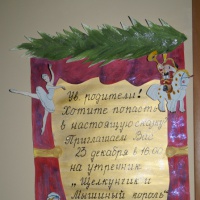 Ув. родители!
Хотите попасть
в настоящую сказку
Приглашаем Вас
23 декабря в 16:00
на утренник
„Щелкунчик и
Мышиный король"